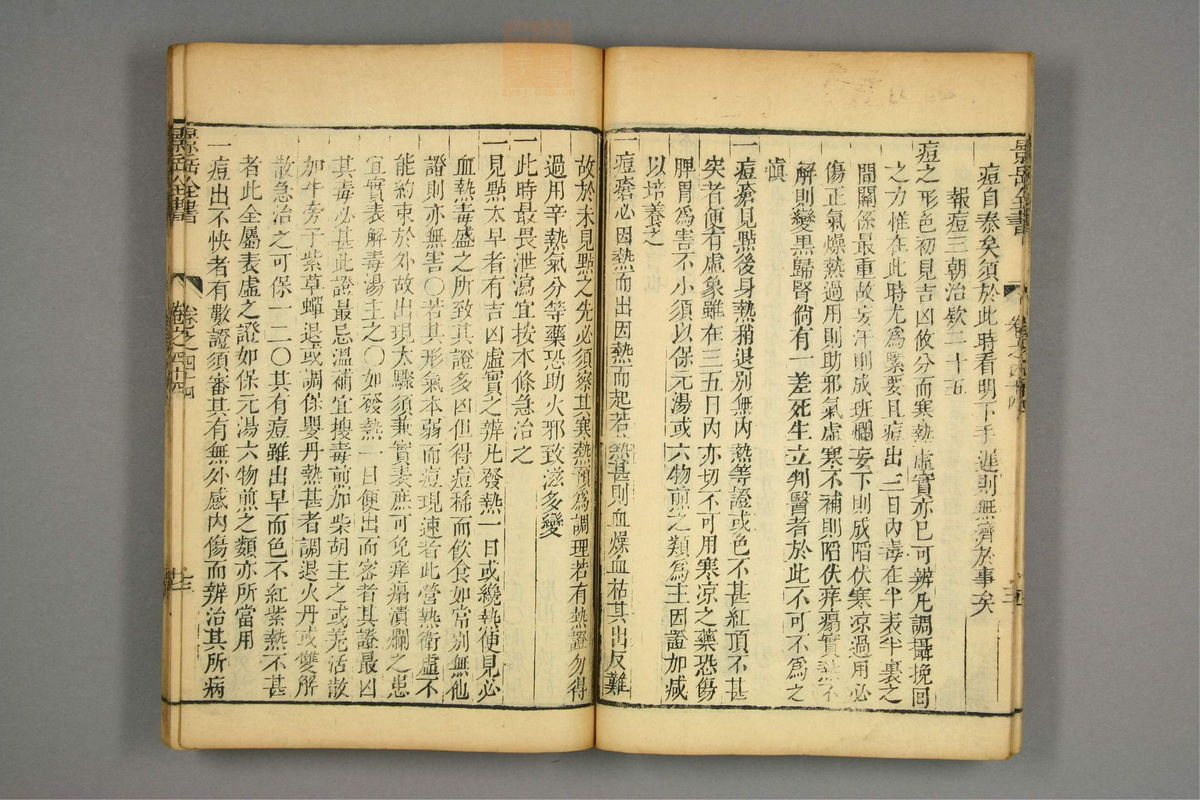 景岳全書
卷之四十四
痘自泰矣須於此時看明下手遲則無濟於事矣
報痘三朝治欵二十五
痘之形色初見吉凶攸分而寒熱虛實亦已可辨凡調攝挽囘
之方惟在此時尤爲緊要且痘出三日內毒在半表半裏之
間關係最重故妄汗則成斑爛妄下則成陷伏寒凉過用必
傷正氣燥熱過用則助邪氣虛寒不補則陷伏痒瘍實熱不
解則變黑歸腎倘有一差死生立判醫者於此不可不爲之
慎
一痘瘡見點後身熱稍退別無內熱等證或色不甚紅頂不甚
突者便有虛象雖在三五日內亦切不可用寒凉之藥恐傷
脾胃爲害不小須以保元湯或六物煎之類爲主因證加减
以培養之
一痘瘡必因熱而出因熱而起若熱甚則血燥血枯其出反難
故於未見點之先必須察其寒熱預爲調理若有熱證勿得
過用辛熱氣分等藥恐助火邪致滋多變
一此時最畏泄瀉宜按本條急治之
一見點太早者有吉凶虛實之辨凡發熱一日或纔熱便見必
血熱毒盛之所致其證多凶但得痘稀而飲食如常別無他
證則亦無害○若其形氣本弱而痘現速者此營熱衛虛不
能約束於外故出現太驟須兼實表庶可免痒塌潰爛之患
宜實表解毒湯主之○如發熱一日便出而密者其證最凶
其毒必甚此證最忌溫補宜搜毒煎加柴胡主之或羗活散
加牛旁子紫草蟬退或調保嬰丹熱甚者調退火丹或雙解
散急治之可保一二○其有痘雖出早而色不紅紫熱不甚
者此全屬表虛之證如保元湯六物煎之類亦所當用
一痘出不快者有數證須審其有無外感內傷而辨治其所病
景岳全書
卷之四十四